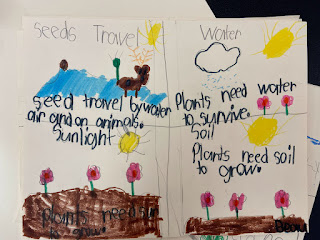 Seeds Travel
seed travel bywater
air and on animals.
Sunlight
plants need sun
to grow.
Water
Plants need water
to survive.
Soil
Plants need soil
to grow.